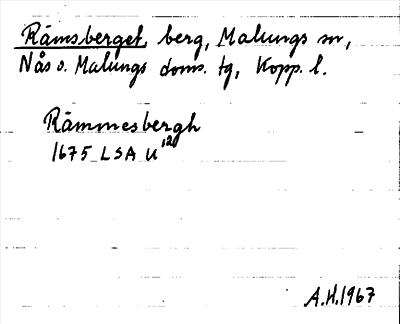 Rämsberget, berg, Malungs sn,
Nås o. Malungs doms. tg, Kopp. l.
Rämmesbergh
1675 LSA U¹²
A.H.1967